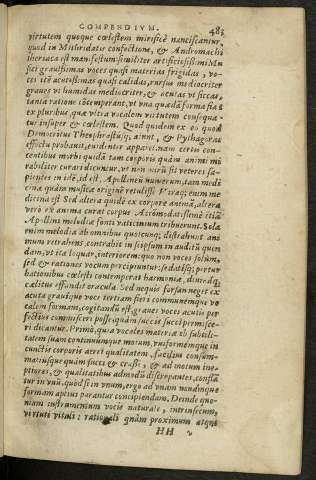 COMPENDIVM. 483
virtutem quoque cœlestem mirificè nanciscantur,
quod in Mitridatis confectione, & Andromachi
theriaca est manifestum: similiter artificiosissimi Mu
sici grauissimas voces quasi materias frigidas, vo
ces itē acutissimas quasi calidas, rursus mediocriter
graues vt humidas mediocriter, & acutas vt siccas,
tanta ratione cōtemperant, vt vna quædā forma fiat
ex pluribus, quæ vltra vocalem virtutem consequa-
tur insuper & cœlestem. Quod quidem ex eo quod
Democritus Theophrastusq́; aiunt, & Pythagoras
effectu probauit, euidenter apparet. nam certos con-
centibus morbi quidā tam corporis quàm animi mi
rabiliter curari dicuntur, vt non mirū sit veteres sa-
pientes in idē, id est, Apollinē numerum, tam medi
cinæ quàm musicæ originē retulisse. Vtraq; enim me
dicina est. Sed altera quidē ex corpore animā, altera
verò ex anima curat corpus. Accōmodatissimè etiā
Apollini modulis fontis vaticinium tribuerunt. Sola
enim melodia ab omnibus quocunq; distrahunt ani-
mum retrahens, contrahit in seipsum in auditū quen
dam, vt ita loquar, interiorem: quo non voces solùm,
sed & rationes vocum percipiuntur: sedatisq; pertur
bationibus cœlesti contemperat harmoniæ, diuinaq;
cælitus effundit oracula. Sed nequis forsan neget ex
acuta grauique voce tertiam fieri communemque vo
calem formam, cogitandū est, graues voces acutis per
fectius commisceri posse: quàm succis succi permisce-
ri dicantur. Primò, quia vocales materiæ ob subtili-
tatem suam continuumque motum, vniformemque in
cunctis corporis aerei qualitatem, facilius consum-
matiusque quàm succi & crassi, & ad motum ine-
ptiores, & qualitatibus admodū discrepantes, conflā
tur in vnū. quòd si in vnum, ergo ad vnam nouāmque
formam aptius parantur concipiendam. Deinde quo-
niam instrumentum vocis naturale, intrinsecum,
virtuti vitali: rationali quàm proximum atque
HH 2